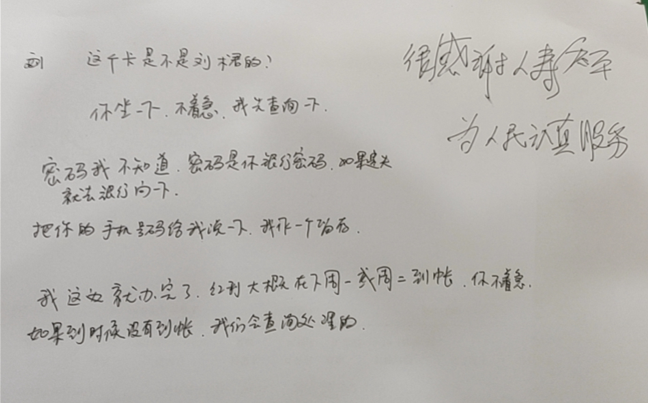 这个卡是不是刘樱的?
你坐一下,不着急,我先查询一下.
密码我不知道.密码是你银行密码.如果遗失
就去银行问一下.
把你的手机号码给我说一下.我作一个留存.
我这边就办完了.红利大概在下周一或周二到帐.你不着急.
如果到时候没有到帐.我们会查询处理的.
很感谢人寿
为人民认真服务